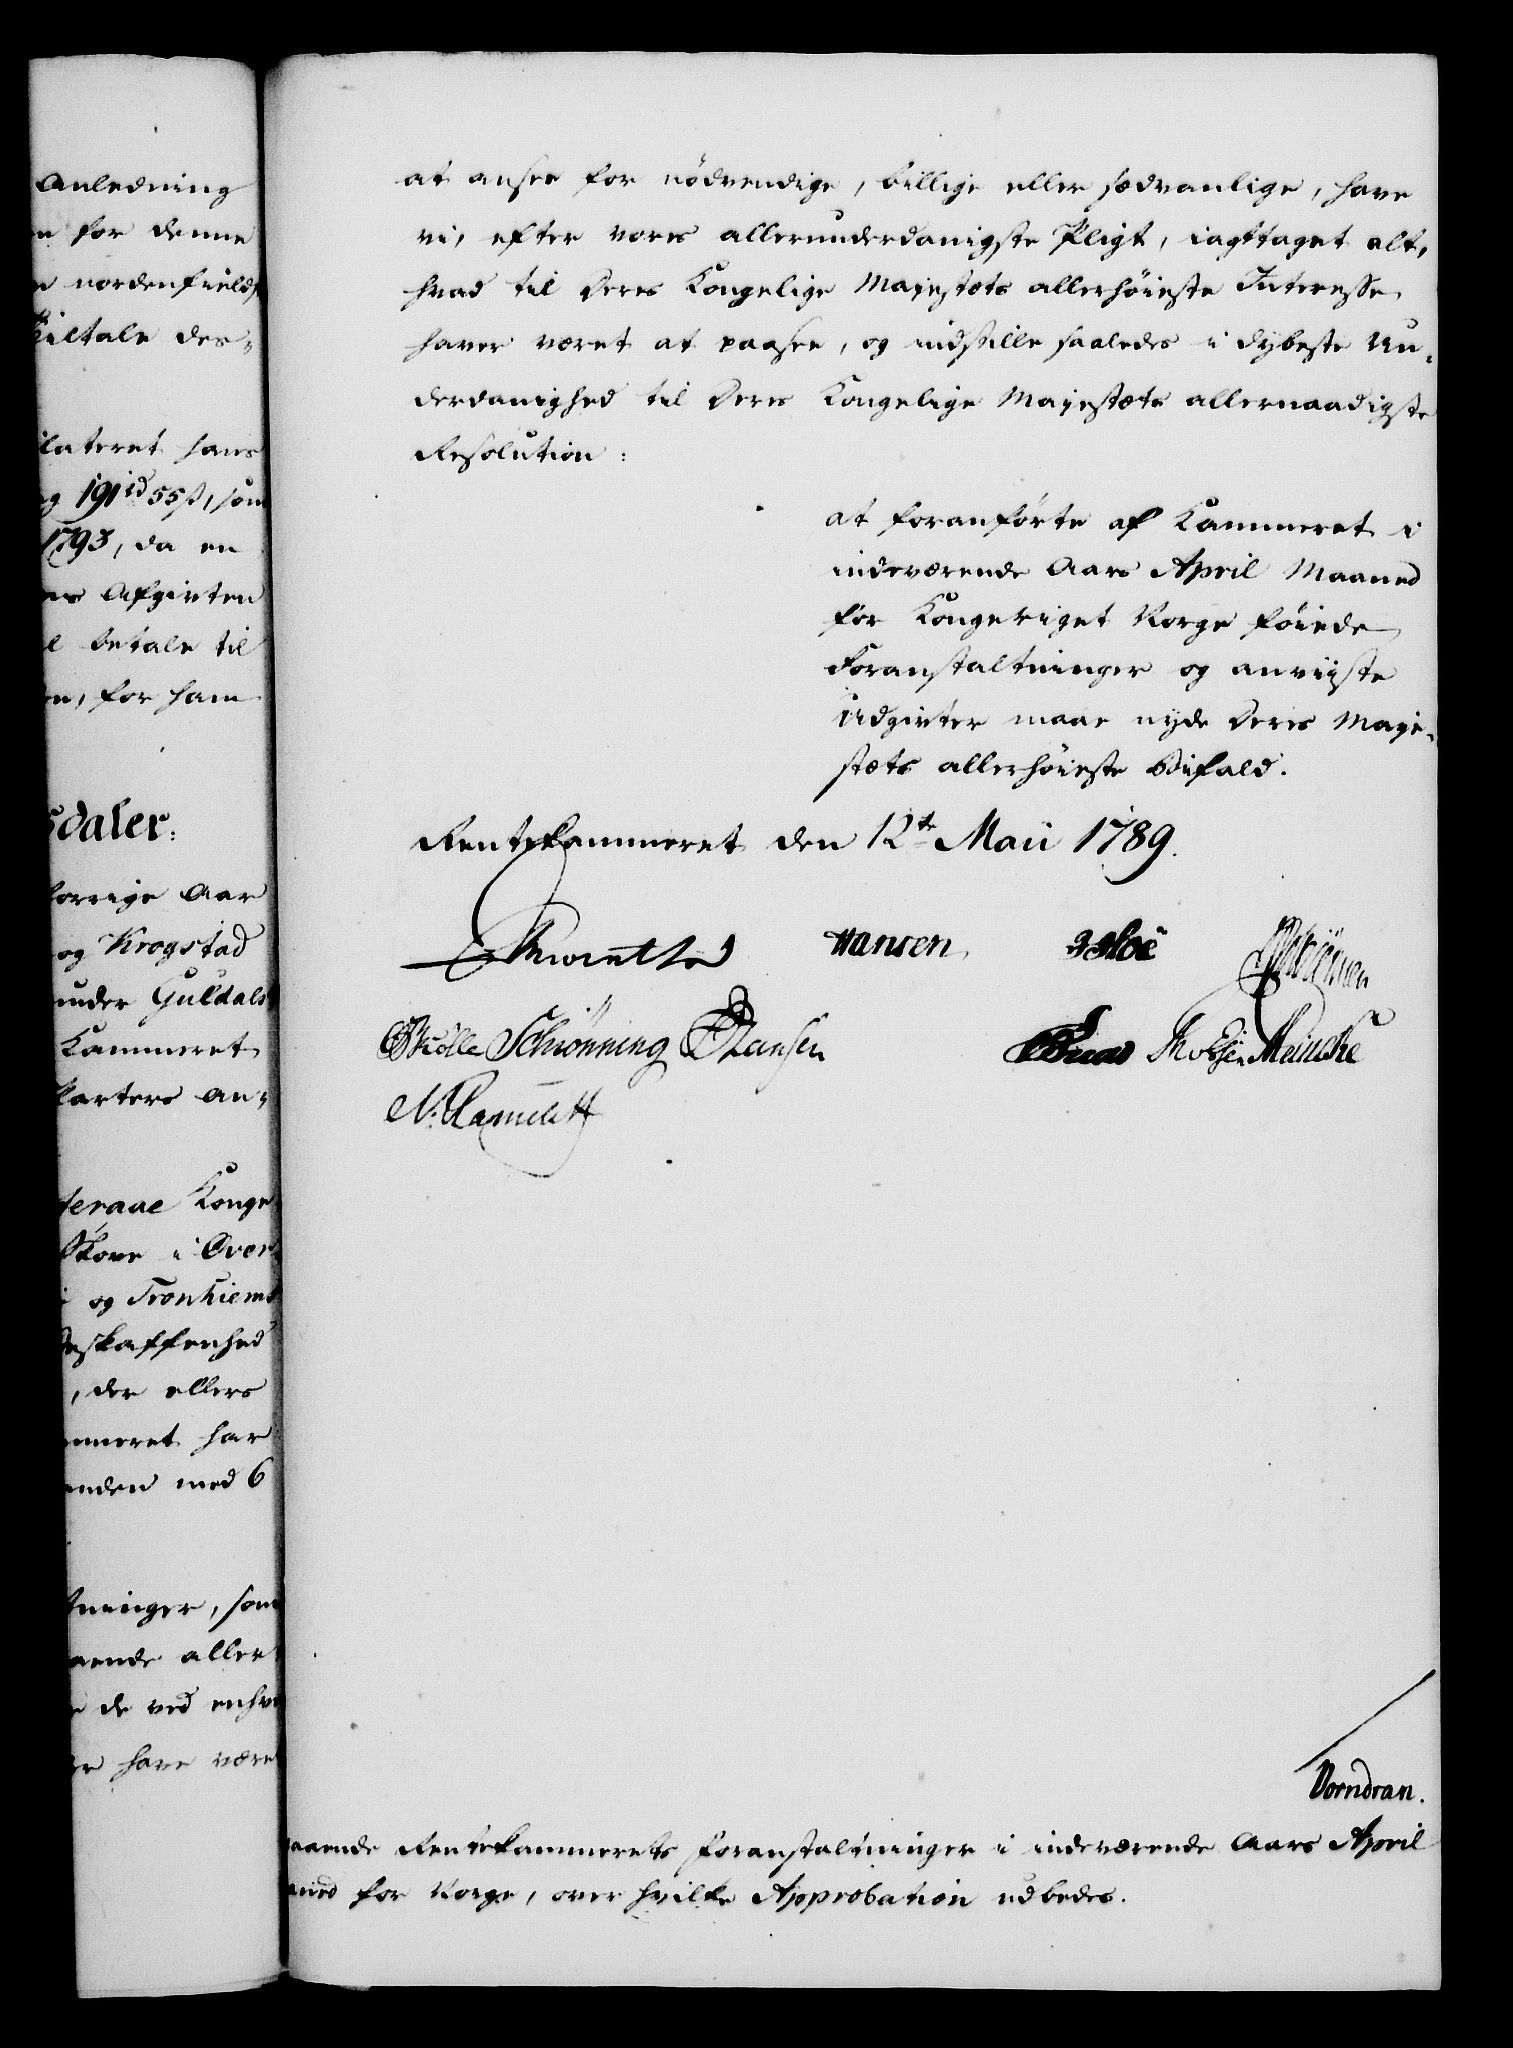 Anledning
for denne
nordenfields
Tiltale des-
lateret hans
og 191 rd 55 ß, som
1793, da en
Afgivten
betale til
for ham
sdaler:
forrige Aar
og Krogstad
under Guldals
Kammeret
karters an-
deraae Konge
Skove i Over
og Tronhiems
Beskaffenhed
, der ellers
meret har
anden med 6
tninger, som
aller
de ved enhve
have være
at ansee for nödvendige, billige eller sædvanlige, have
vi, efter vores allerunderdanigste Pligt, iagttaget alt,
hvad til Deres Kongelige Majestæts allerhöieste Interesse
haver været at paasee, og indstille saaledes i dybeste Un-
derdanighed til Deres Kongelige Majestæts allernaadigste
Resolution:
at foranförte af Kammeret i
indeværende Aars April Maaned
for Kongeriget Norge föiede
Foranstaltninger og anviiste
Udgivter maae nyde Deres Maje-
stæts allerhöieste Bifald.
Rentekammeret den 12te Maii 1789.
Hansen
Schiönning Hansen
Meincke
Vorndran.
aaende Rentekammerets Foranstaltninger i indeværende Aars April
aned for Norge, over hvilke Approbation udbedes.